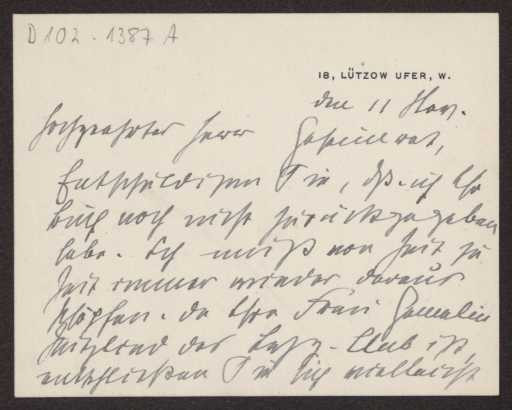 D 102 - 1387 A
18, LÜTZOW UFER, W.
den 11 Nov.
Hochgeehrter Herr Geheimrat,
Entschuldigen Sie, dß ich Ihr
Buch noch nicht zurückgegeben
habe. Ich muß von Zeit zu
Zeit immer wieder daraus
schöpfen. Da Ihre Frau Gemalin
Mitglied des -Club ist,
entschließen Sie sich vielleicht